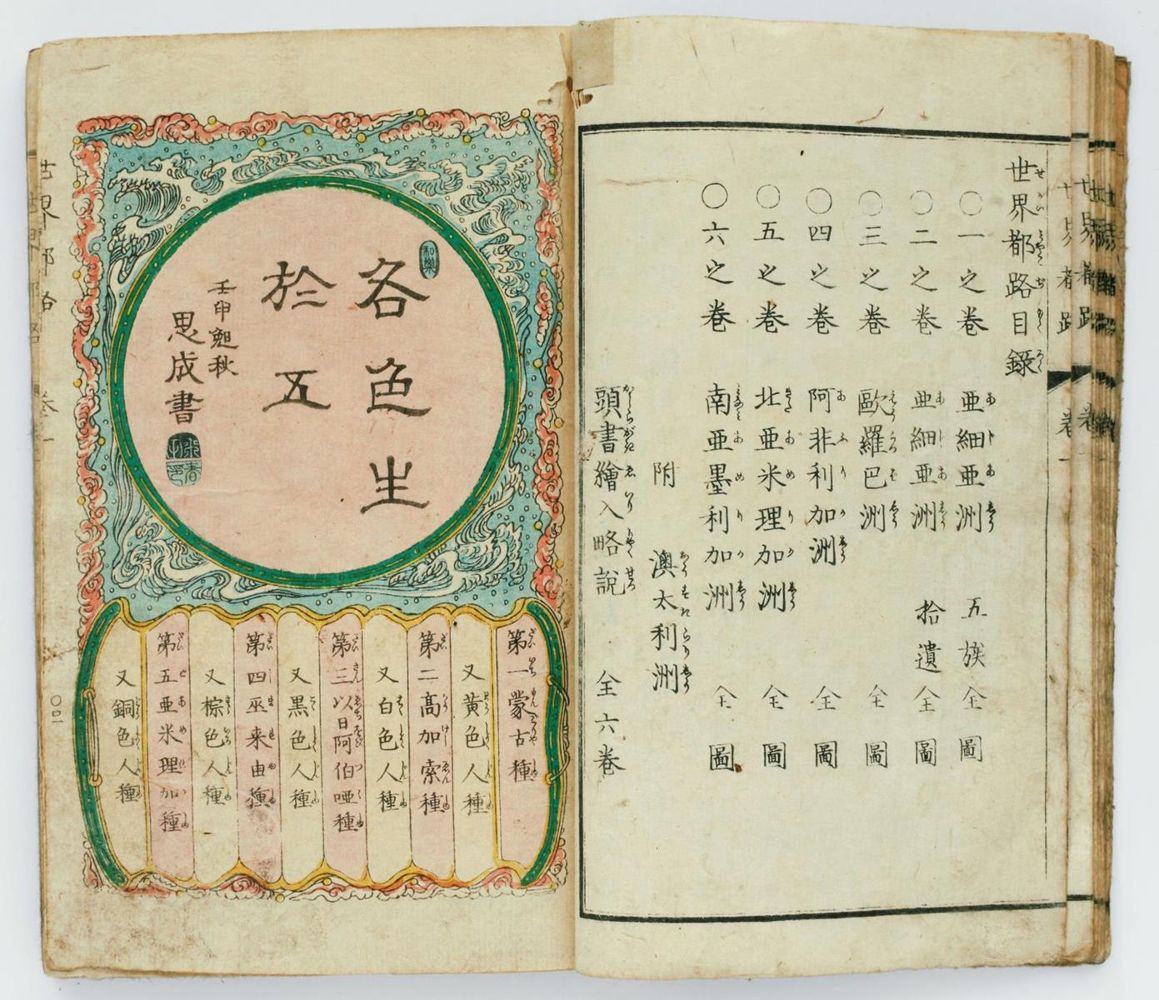 世界都路目録
〇一之巻 亜細亜洲 五族 全圖
〇二之巻 亜細亜洲 拾遺 全圖
〇三之巻 歐羅巴洲 全圖
〇四之巻 阿非利加洲 全圖
〇五之巻 北亜米理加洲 全圖
〇六之巻 南亜墨利加洲 全圖
附 澳太利洲
頭書繪入略説 全六巻
各色生
於五
壬申 秋
思成書
第一蒙古種
又黄色人種
第二高加索種
又白色人種
第三以日阿伯哑種
又黒色人種
第四巫来由種
又棕色人種
第五亜米理加種
又銅色人種
世界都路 巻一